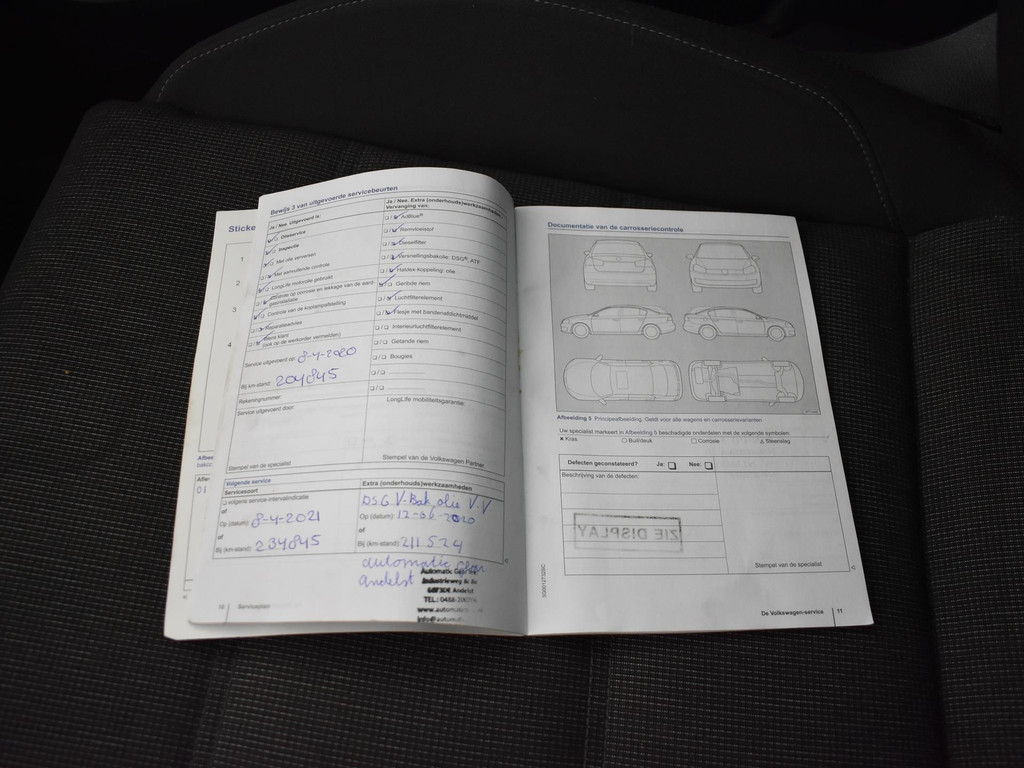 Sticke
1
2
3
4
01
Bewijs 3 van uitgevoerde servicebeurten
Ja / Nee. Uitgevoerd is:
Olieservice
Inspectie
Met olie verversen
Met aanvullende controle
LongLife motorolie gebruikt
Controle van de koplampafstelling
Reparatieadvies
(ook op de werkorder vermelden)
Service uitgevoerd op: 8-4-2020
Bij km-stand: 204845
Rekeningnummer:
Service uitgevoerd door:
Stempel van de specialist
Ja / Nee. Extra (onderhouds)werkzaamheden
Vervanging van:
AdBlue®
Remvloeistof
Dieselfilter
Versnellingsbakolie: DSG®, ATF
Haldex-koppeling: olie
Geribde riem
Luchtfilterelement
Flesje met bandenafdichtmiddel
Interieurluchtfilterelement
Getande riem
Bougies
LongLife mobiliteitsgarantie:
Stempel van de Volkswagen Partner
Volgende service
Servicesoort
volgens service-intervalindicatie
of
Op (datum): 8-4-2021
of
Bij (km-stand): 234845
Extra (onderhouds)werkzaamheden
DSG V-Bak olie V.V
Op (datum): 12-06-2020
of
Bij (km-stand): 211524
automatic
Andelst
Automatic
Industrieweg
6673DE Andelst
TEL.: 0488-
www.automatic
info@autom
10 Serviceplan
Documentatie van de carrosseriecontrole
Afbeelding 5 Principeafbeelding. Geldt voor alle wagens en carrosserievarianten
Uw specialist markeert in Afbeelding 5 beschadigde onderdelen met de volgende symbolen:
× Kras ○ Buil/deuk □ Corrosie △ Steenslag
Defecten geconstateerd? Ja: □ Nee: □
Beschrijving van de defecten:
ZIE DISPLAY
Stempel van de specialist
De Volkswagen-service 11